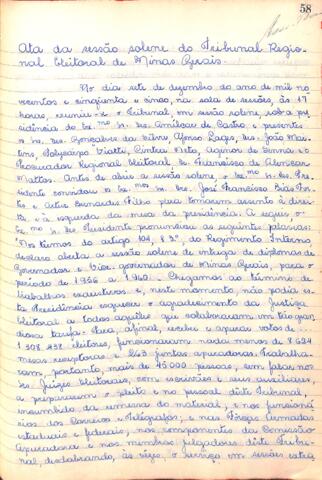 58
Ata da sessão solene do Tribunal Regio-
nal Eleitoral de Minas Gerais
No dia sete de dezembro do ano de mil no-
vecentos e cinqüenta e cinco, na sala de sessões, às 17
horas, reuniu-se o Tribunal, em sessão solene, sob a pre-
sidência do Exmo. Sr. Des. Amilcar de Castro, e presentes
os Srs. Des. Gonçalves da Silva, Afonso Lages, Drs. João Mar-
tins, Policarpo Viotti, Cintra Neto, Aginor de Senna e o
Procurador Regional Eleitoral Dr. Francisco de Alencar
Mattos. Antes de abrir a sessão solene, o Exmo. Sr. Des. Pre-
sidente convidou os Exmos. Srs. Drs. José Francisco Bias For-
tes e Artur Bernardes Filho para tomarem assento à direi-
ta e à esquerda da mesa da presidência. A seguir, o
Exmo. Sr. Des. Presidente pronunciou as seguintes palavras:
"Nos termos do artigo 104, § 3º, do Regimento Interno
declaro aberta a sessão solene de entrega de diplomas de
Governador e Vice-governador de Minas Gerais, para o
período de 1956 a 1960. Chegamos ao término de
trabalhos exaustivos e, neste momento, não podia es-
ta Presidência esquecer o agradecimento da Justiça
Eleitoral a todos aqueles que colaboraram em tão gran-
diosa tarefa. Para, afinal, receber e apurar votos de
1.508.438 eleitores, funcionaram nada menos de 8.624
mesas receptoras e 263 juntas apuradoras. Trabalha-
ram, portanto, mais de 45.000 pessoas, sem falar nos
Srs. Juízes Eleitorais, com escrivães e seus auxiliares
a prepararem o pleito e no pessoal deste Tribunal,
incumbido da remessa do material, e nos funcioná-
rios dos Correios e Telégrafos, e nas Forças Armadas
estaduais e federais, nos componentes da Comissão
Apuradora e nos membros julgadores deste Tribu-
nal, desdobrando, às vezes, o serviço em sessões extra